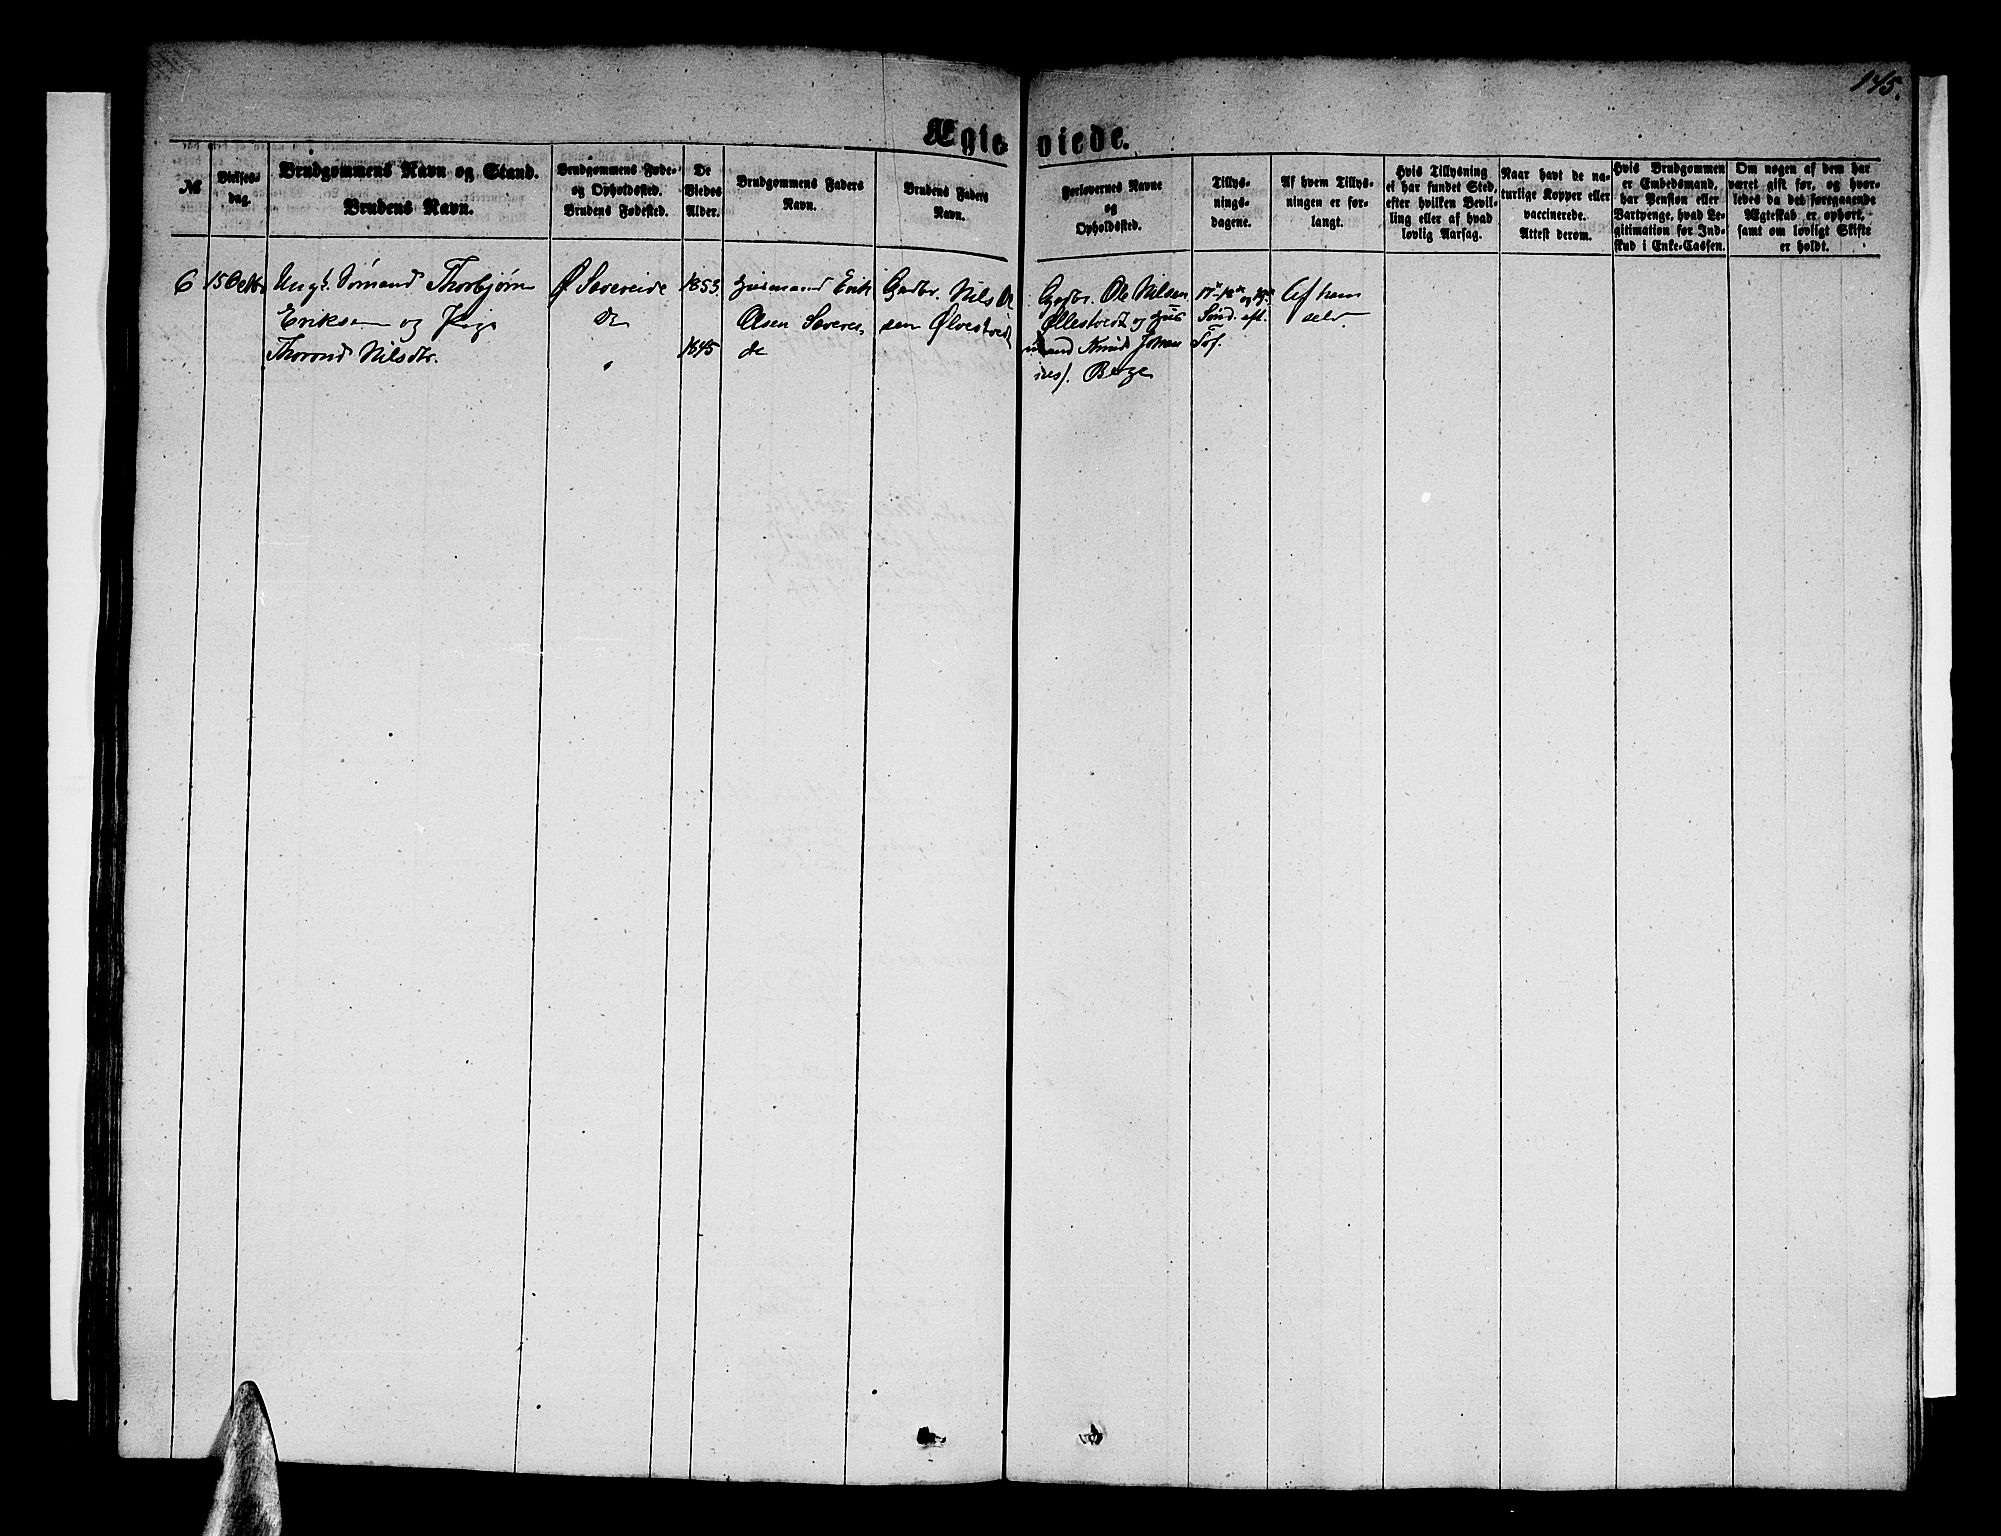 145.
Ægte
viede.
№
Vielses-
dag.
Brudgommens Navn og Stand.
Brudens Navn.
Brudgommens Føde-
og Opholdssted.
Brudens Fødested.
De
Viedes
Alder.
Brudgommens Faders
Navn.
Brudens Faders
Navn.
Forlovernes Navne
og
Opholdssted.
Tillys-
nings-
dagene.
Af hvem Tillys-
ningen er for-
langt.
Hvis Tillysning
ei har fundet Sted,
efter hvilken Bevil-
ling eller af hvad
lovlig Aarsag.
Naar havt de na-
turlige Kopper eller
vaccinerede.
Attest derom.
Hvis Brudgommen
er Embedsmand,
har Pension eller
Vartpenge, hvad Le-
gitimation for Ind-
skud i Enke-Cassen.
Om nogen af dem har
været gift før, og hvor-
ledes da det foregaaende
Ægteskab er ophørt,
samt om lovligt Skifte
er holdt.
6
15 Octbr
Ungk. Sømand Thorbjørn
Eriksen og Pige
Thorond Nilsdtr.
Ø Sævereide
do
"
1853
1845
Husmand Erik
Olsen Sæverei-
de
Gadbr. Nils Ol
sen Ølvestvedt
Gadbr. Ole Nilsen
Øllestvedt og Hus
mand Knud Johan
nes/. Berge
17de 18de og 19de
Sønd. eft.
Tref.
Af ham
selv.